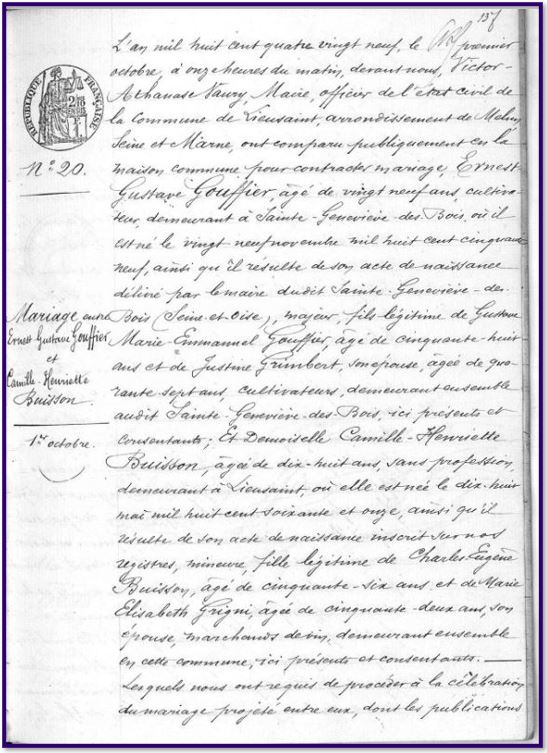 137
L'an mil huit cent quatre vingt neuf, le premier
octobre, à onze heures du matin, devant nous, Victor-
Athanase Vaury, Maire, officier de l'état civil de
la Commune de Lieusaint, arrondissement de Melun
Seine et Marne, ont comparu publiquement en la
maison commune pour contracter mariage, Ernest-
Gustave Gouffier, âgé de vingt neuf ans, cultiva-
teur, demeurant à Sainte-Geneviève-des-Bois, où il
est né le vingt neuf novembre mil huit cent cinquante
neuf, ainsi qu'il résulte de son acte de naissance
délivré par le maire dudit Sainte-Geneviève-des-
Bois (Seine-et-Oise), majeur, fils légitime de Gustave
Marie-Emmanuel Gouffier, âgé de cinquante-huit
ans et de Justine Grimbert, son épouse, âgée de qua-
rante sept ans, cultivateurs, demeurant ensemble
audit Sainte-Geneviève-des-Bois, ici présents et
consentants; Et Demoiselle Camille-Henriette
Buisson, âgée de dix-huit ans, sans profession,
demeurant à Lieusaint, où elle est née le dix-huit
mai mil huit cent soixante et onze, ainsi qu'il
résulte de son acte de naissance inscrit sur nos
registres, mineure, fille légitime de Charles-Eugène
Buisson, âgé de cinquante-six ans et de Marie
Elisabeth Grigni, âgée de cinquante-deux ans, son
épouse, marchands de vin, demeurant ensemble
en cette commune, ici présents et consentants.
Lesquels nous ont requis de procéder à la célébration
du mariage projeté entre eux, dont les publications
RÉPUBLIQUE FRANÇAISE
N° 20.
Mariage entre
Ernest Gustave Gouffier
et
Camille-Henriette
Buisson
1er octobre.